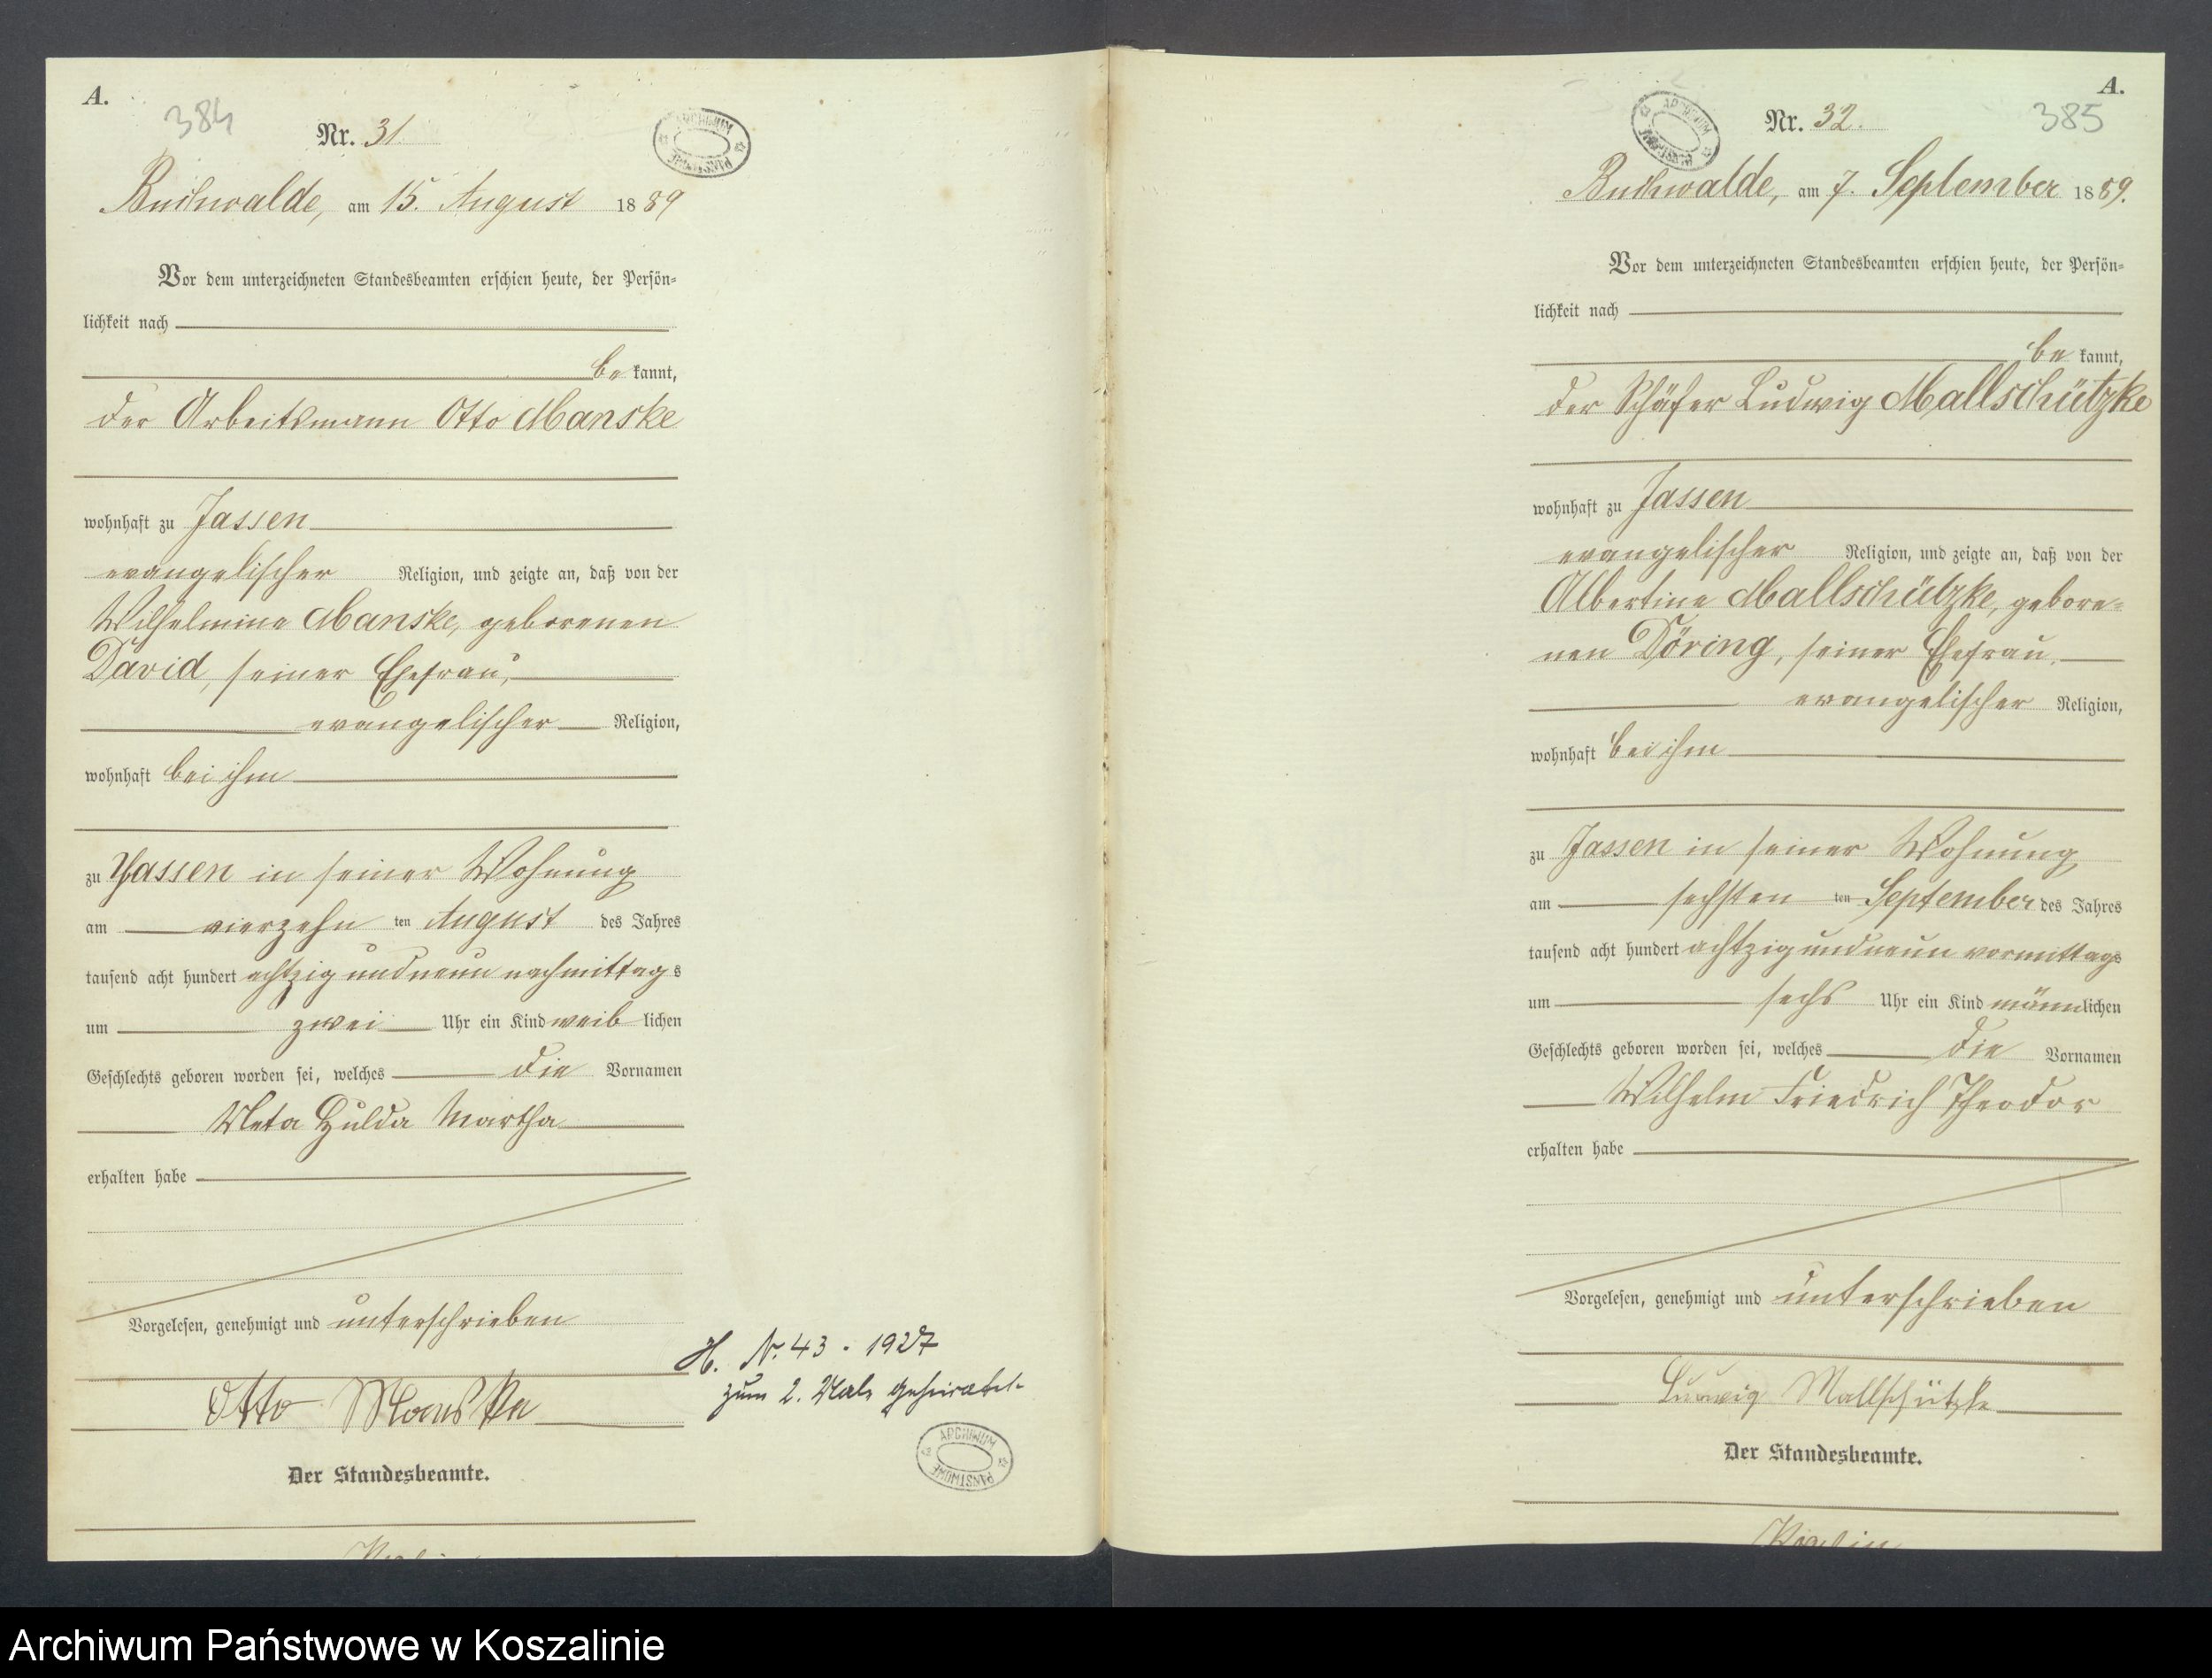 A.
384
Nr. 31.
ARCHIWUM PAŃSTWOWE
Buchwalde, am 15. August 1889
Vor dem unterzeichneten Standesbeamten erschien heute, der Persön-
lichkeit nach
be kannt,
der Arbeitsmann Otto Manske
wohnhaft zu Jassen
evangelischer Religion, und zeigte an, daß von der
Wilhelmine Manske, geborenen
David, seiner Ehefrau,
evangelischer Religion,
wohnhaft bei ihm
zu Jassen in seiner Wohnung
am vierzehn ten August des Jahres
tausend acht hundert achtzig und neun nachmittags
um zwei Uhr ein Kind weiblichen
Geschlechts geboren worden sei, welches die Vornamen
Meta Hulda Martha
erhalten habe
Vorgelesen, genehmigt und unterschrieben
Otto Manske
Der Standesbeamte.
H. Nr. 43 . 1927
zum 2. Male geheiratet.
ARCHIWUM PAŃSTWOWE
A.
385
Nr. 32.
ARCHIWUM PAŃSTWOWE
Buchwalde, am 7. September 1889.
Vor dem unterzeichneten Standesbeamten erschien heute, der Persön-
lichkeit nach
be kannt,
der Schäfer Ludwig Mallschützke
wohnhaft zu Jassen
evangelischer Religion, und zeigte an, daß von der
Albertine Mallschützke, gebore-
nen Döring, seiner Ehefrau,
evangelischer Religion,
wohnhaft bei ihm
zu Jassen in seiner Wohnung
am sechsten ten September des Jahres
tausend acht hundert achtzig und neun vormittags
um sechs Uhr ein Kind männlichen
Geschlechts geboren worden sei, welches die Vornamen
Wilhelm Friedrich Theodor
erhalten habe
Vorgelesen, genehmigt und unterschrieben
Ludwig Mallschützke
Der Standesbeamte.
Archiwum Państwowe w Koszalinie